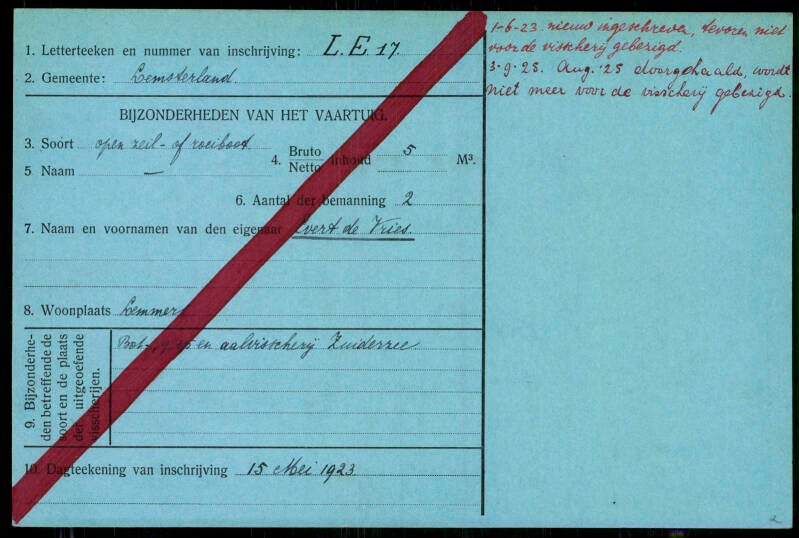 1. Letterteeken en nummer van inschrijving: L.E 17.
2. Gemeente: Lemsterland.
BIJZONDERHEDEN VAN HET VAARTUIG.
3. Soort open zeil- of roeiboot
4. Bruto
Netto inhoud 5 M³.
5 Naam —
6. Aantal der bemanning 2
7. Naam en voornamen van den eigenaar Evert de Vries.
8. Woonplaats Lemmer
9. Bijzonderhe-
den betreffende de
soort en de plaats
der uitgeoefende
visscherijen.
Bot-, en aalvisscherij Zuiderzee
10. Dagteekening van inschrijving 15 Mei 1923
1-6-23. nieuw ingeschreven, tevoren niet
voor de visscherij gebezigd.
3-9-25. Aug. '25 doorgehaald, wordt
niet meer voor de visscherij gebezigd.
2